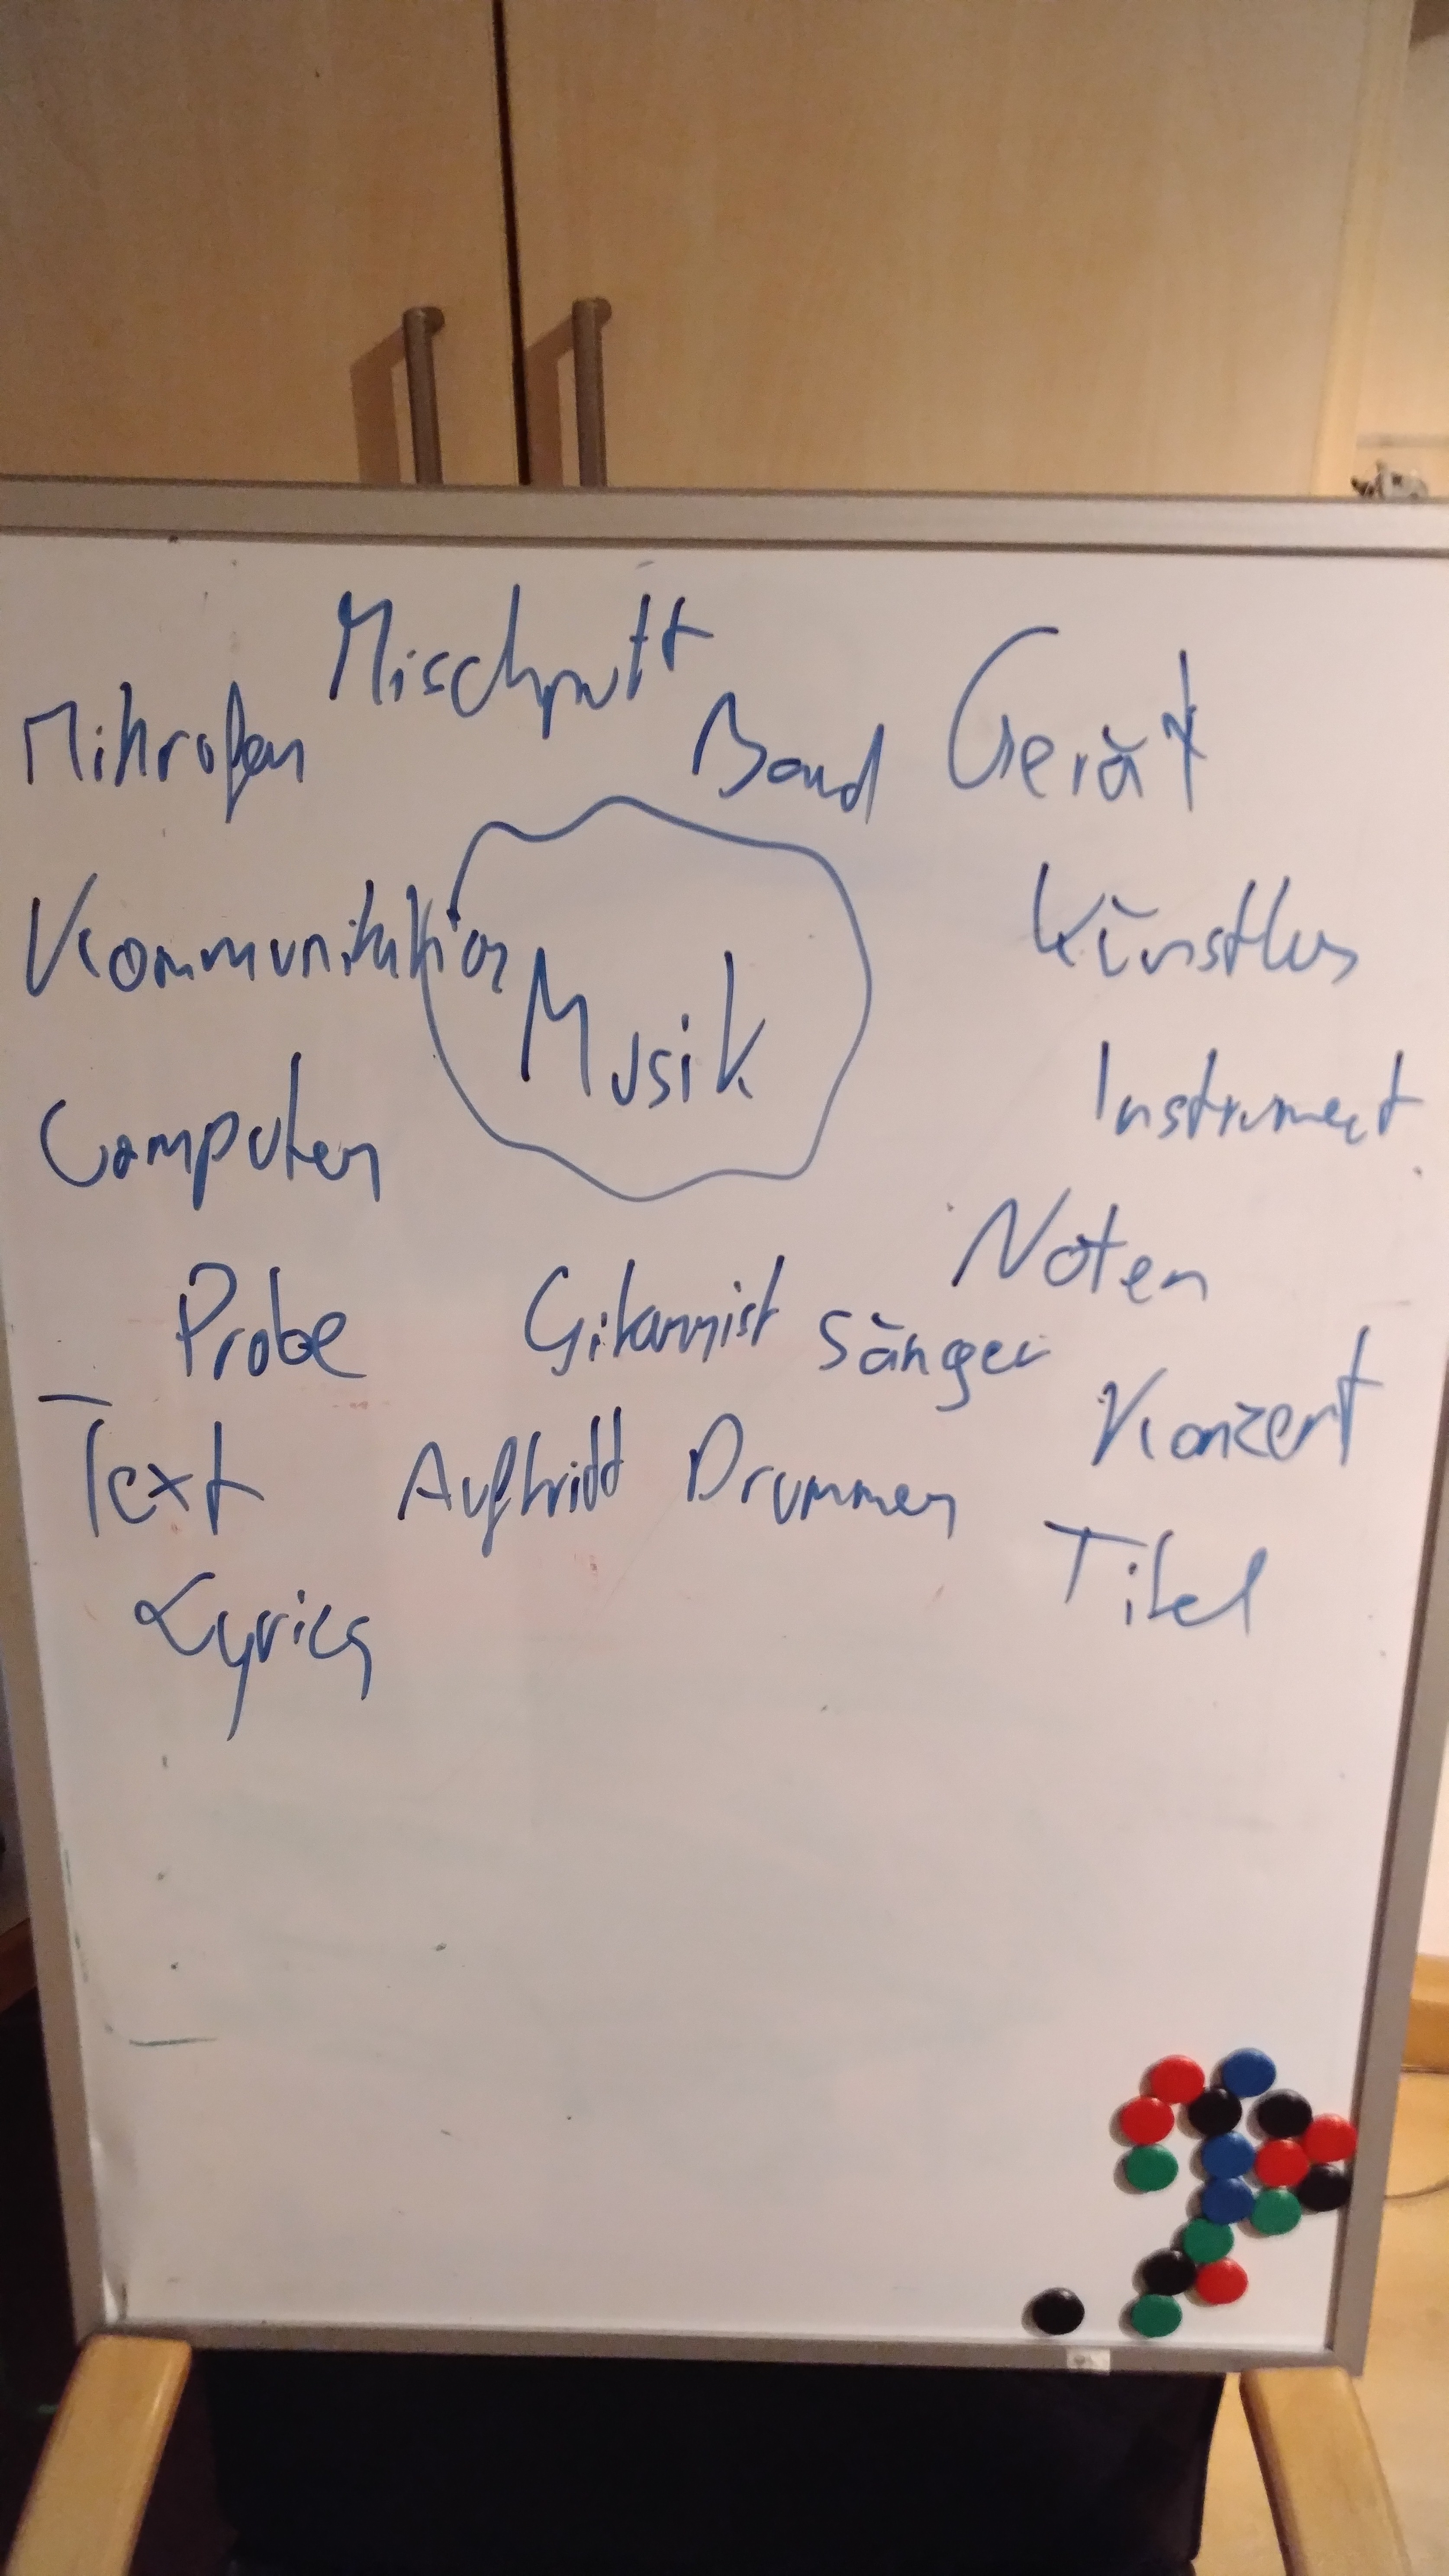 Mischpult
Mikrofon
Band
Gerät
Kommunikation
Künstler
Musik
Instrument
Computer
Noten
Probe
Gitarrist
Sänger
Konzert
Text
Auftritt
Drummer
Titel
Lyrics